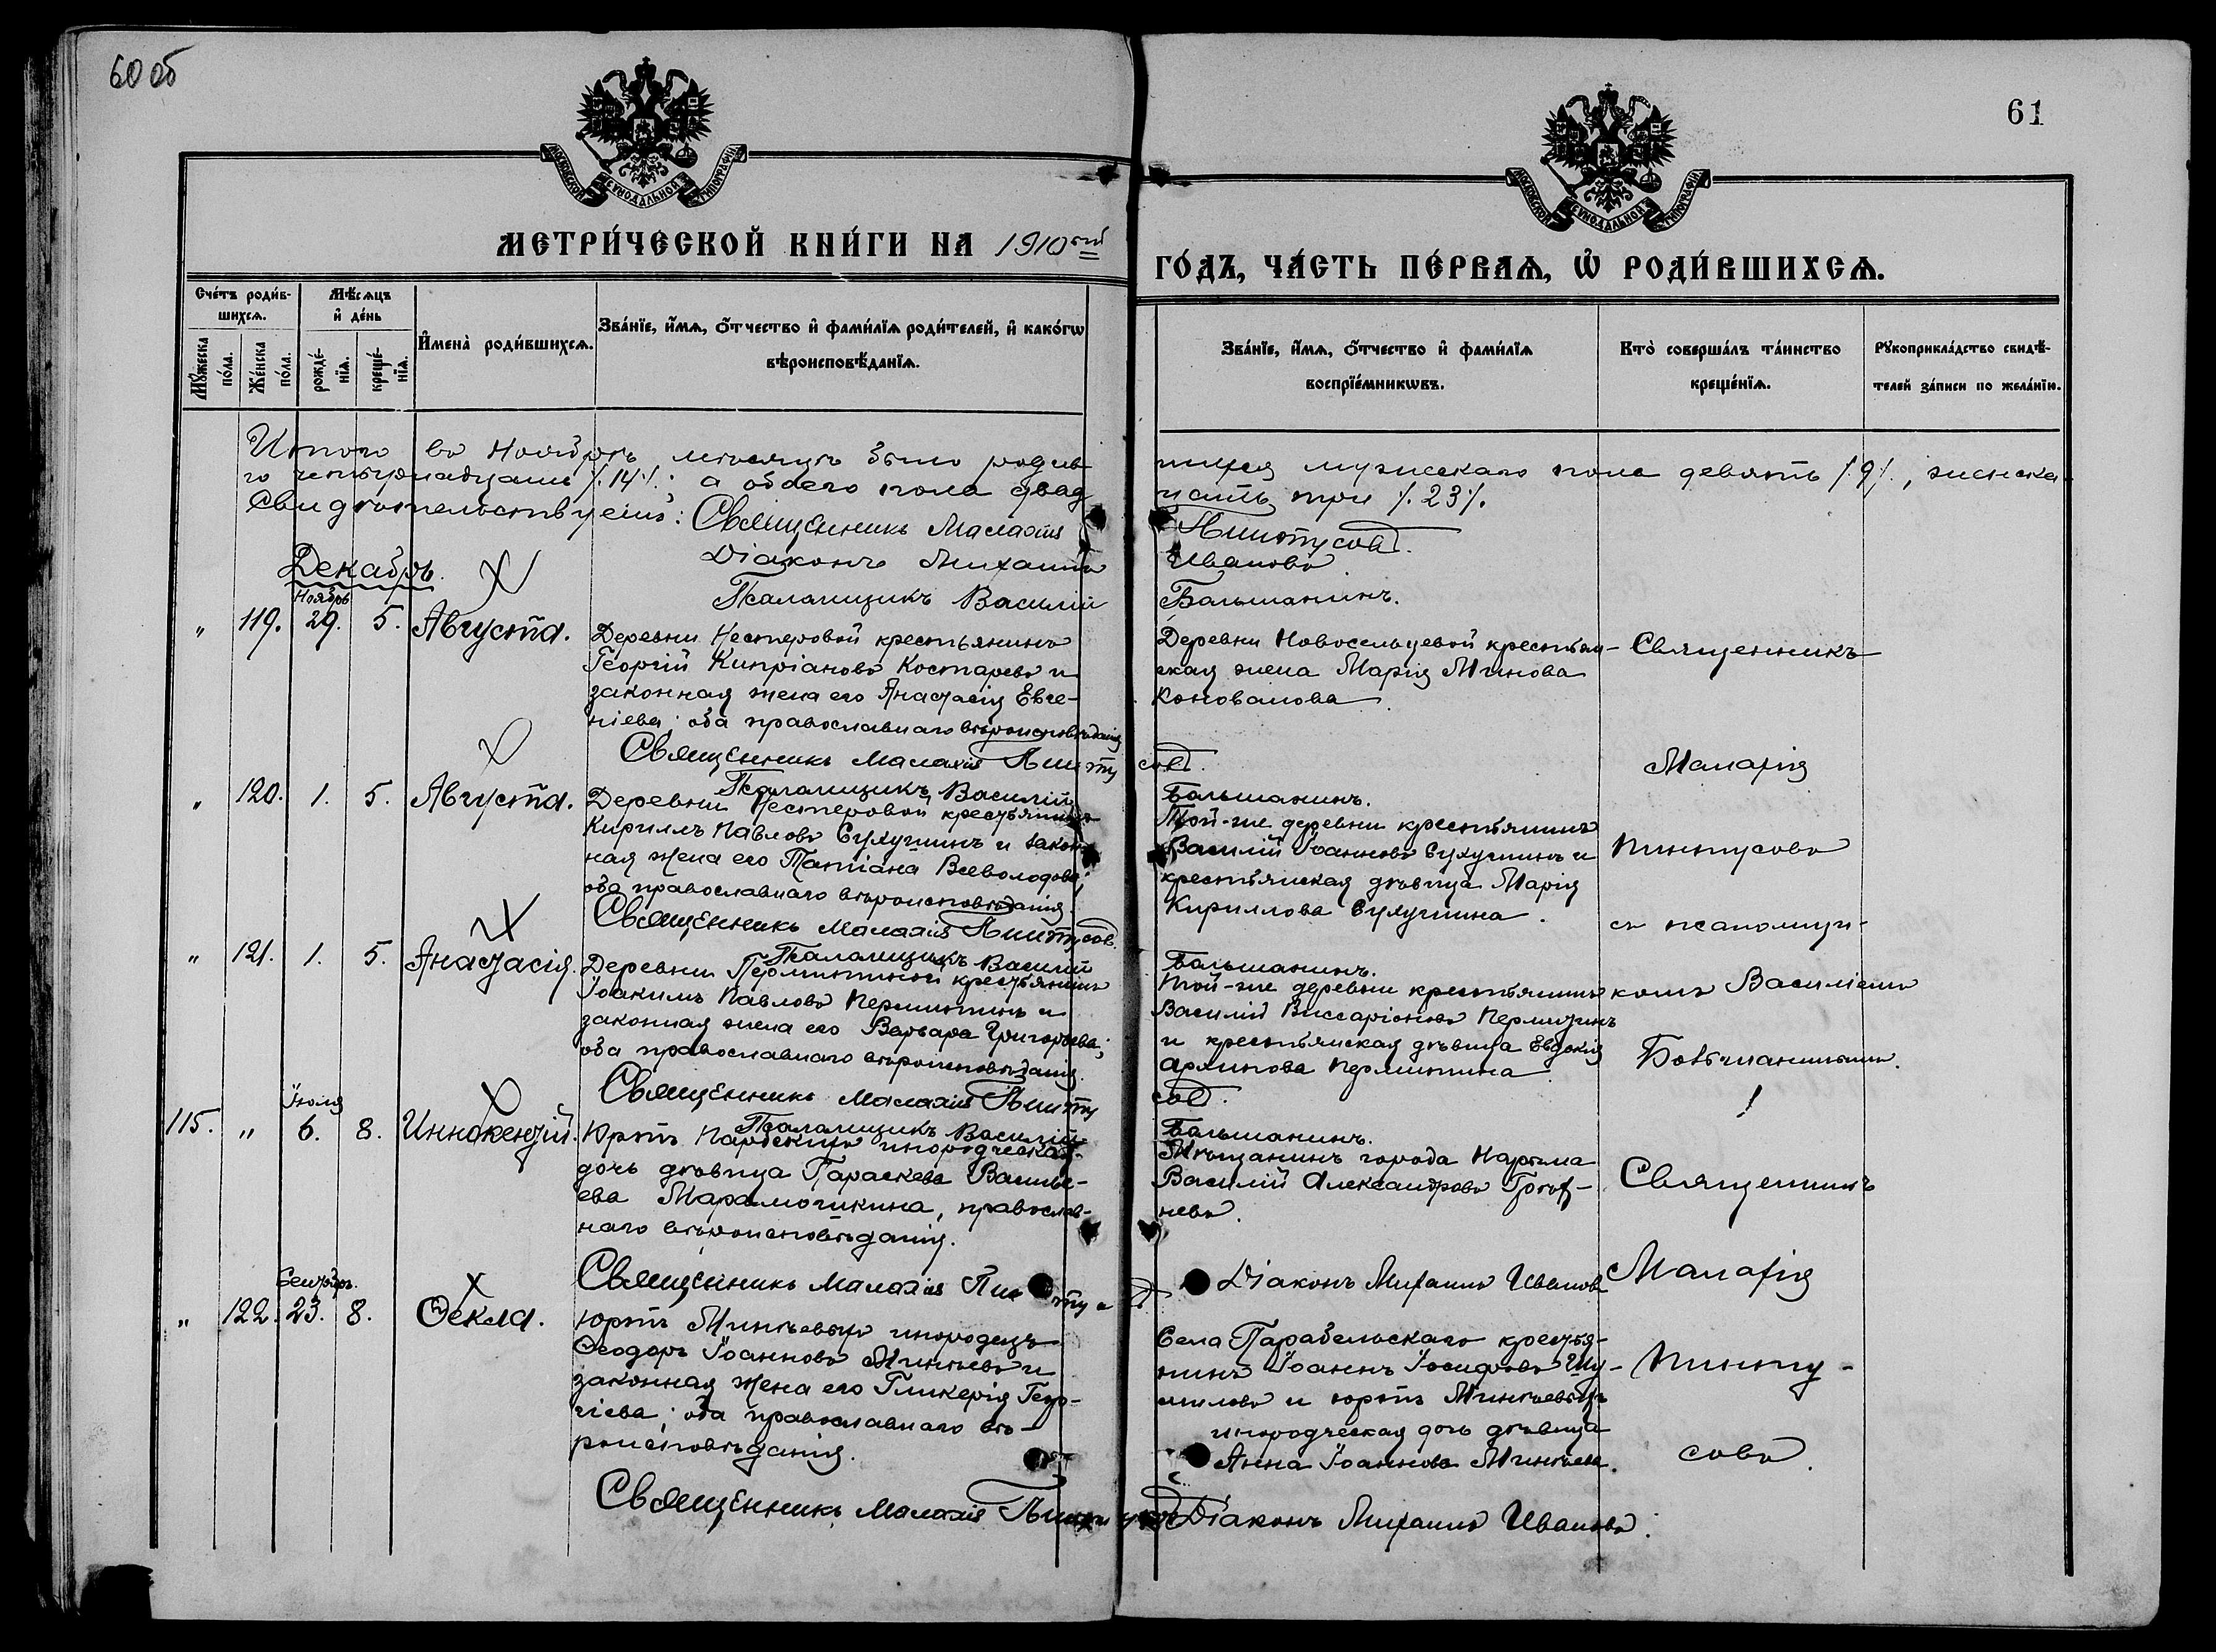 60 об
61
МОСКОВСКОЙ СѴНОДАЛЬНОЙ ТИПОГРАФІИ
МОСКОВСКОЙ СѴНОДАЛЬНОЙ ТИПОГРАФІИ
МЕТРИ́ЧЕСКОЙ КНИ́ГИ НА 1910ый
ГО́ДЪ, ЧА́СТЬ ПЕ́РВАѦ, Ѡ҆ РОДИ́ВШИХСѦ.
Сче́тъ роди́в-
шихсѧ.
Мꙋ́жеска по́ла.
Же́нска по́ла.
Мѣ́сѧцъ
и҆ де́нь
рожде́-
нїѧ.
креще́-
нїѧ.
И҆мена̀ роди́вшихсѧ.
Зва́нїе, и҆́мѧ, ѻ҆́тчество и҆ фами́лїѧ роди́телей, и҆ како́гѡ
вѣроисповѣ́данїѧ.
Зва́нїе, и҆́мѧ, ѻ҆́тчество и҆ фами́лїѧ
воспрїе́мникѡвъ.
Кто̀ соверша́лъ та́инство
креще́нїѧ.
Рꙋкоприкла́дство свидѣ́-
телей за́писи по жела́нїю.
Итого въ Ноябрѣ мѣсяцѣ было родив
шихся мужескаго пола девять /.9/., женска
го четырнадцать /.14/.; а обоего пола двад
цать три /.23/.
Свидѣтельствуемъ: Священникъ Малахія
Пинтусовъ.
Діаконъ Михаилъ
Ивановъ
Псаломщикъ Василій
Большанинъ.
Декабрь.
Ноябрь
" 119. 29. 5. Августа.
Деревни Нестеровой крестьянинъ
Георгій Кипріановъ Костаревъ и
законная жена его Анастасія Евге-
ніева; оба православнаго вѣроисповѣданія
Деревни Новосельцевой крестьян-
ская жена Марія Минова
Коновалова.
Священникъ
Священникъ Малахія Пинту
совъ.
Малахія
Псаломщикъ Василій
Большанинъ.
" 120. 1. 5. Августа.
Деревни Нестеровой крестьянинъ
Кириллъ Павловъ Сухушинъ и закон
ная жена его Татіана Всеволодова;
оба православнаго вѣроисповѣданія.
Той-же деревни крестьянинъ
Василій Іоанновъ Сухушинъ и
крестьянская дѣвица Марія
Кириллова Сухушина.
Пинтусовъ
съ псаломщи-
Священникъ Малахія Пинтусовъ.
Псаломщикъ Василій
Большанинъ.
" 121. 1. 5. Анастасія.
Деревни Перминтиной крестьянинъ
Іоакимъ Павловъ Перминтинъ и
законная жена его Варвара Григорьева;
оба православнаго вѣроисповѣданія.
Той-же деревни крестьянинъ
Василій Виссаріоновъ Пермитинъ
и крестьянская дѣвица Евдокія
Пермитина.
комъ Василіемъ
Большанинымъ.
Священникъ Малахія Пинту
совъ.
Псаломщикъ Василій
Большанинъ.
Іюля
115. " 6. 8. Иннокентій.
Юртъ инородческая
дочь дѣвица Параскева Василь-
ева Марамочикина, православ-
наго вѣроисповѣданія.
Мѣщанинъ города Нарыма
Василій Александровъ
невъ.
Священникъ
Священникъ Малахія Пинту
Діаконъ Михаилъ Ивановъ
Малахія
Сентябрь.
" 122. 23. 8. Ѳекла.
Юртъ Мингѣевыхъ инородецъ
Ѳеодоръ Іоанновъ Мингѣевъ и
законная жена его Гликерія Геор-
гіева; оба православнаго вѣ-
роисповѣданія.
Села Парабельскаго крестья-
нинъ Іоаннъ Іосифовъ Шу-
миловъ и юртъ Мингѣевыхъ
инородческая дочь дѣвица
Анна Іоаннова Мингѣева.
Пинту-
совъ.
Священникъ Малахія Пинтусовъ
Діаконъ Михаилъ Ивановъ.